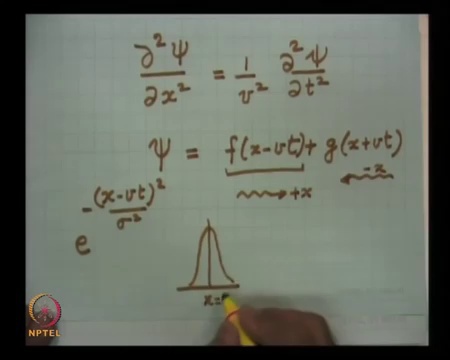 ∂²Ψ/∂x² = 1/v² ∂²Ψ/∂t²
Ψ = f(x-vt) + g(x+vt)
~~~→ +x ←~~~ -x
e^(-(x-vt)²/σ²)
x=
NPTEL